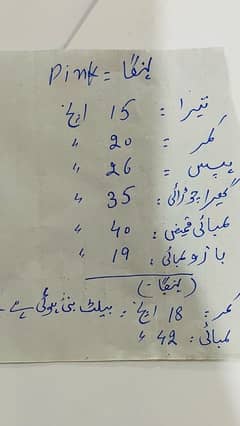 لہنگا = Pink
تیرا : 15 انچ
کمر = 20 〃
ہپس = 26 〃
گھیرا چوڑائی : 35 〃
لمبائی قمیض : 40 〃
بازو لمبائی : 19 〃
(لہنگا-)
کمر : 18 انچ - بیلٹ بنی ہوئی ہے -
لمبائی : 42 〃